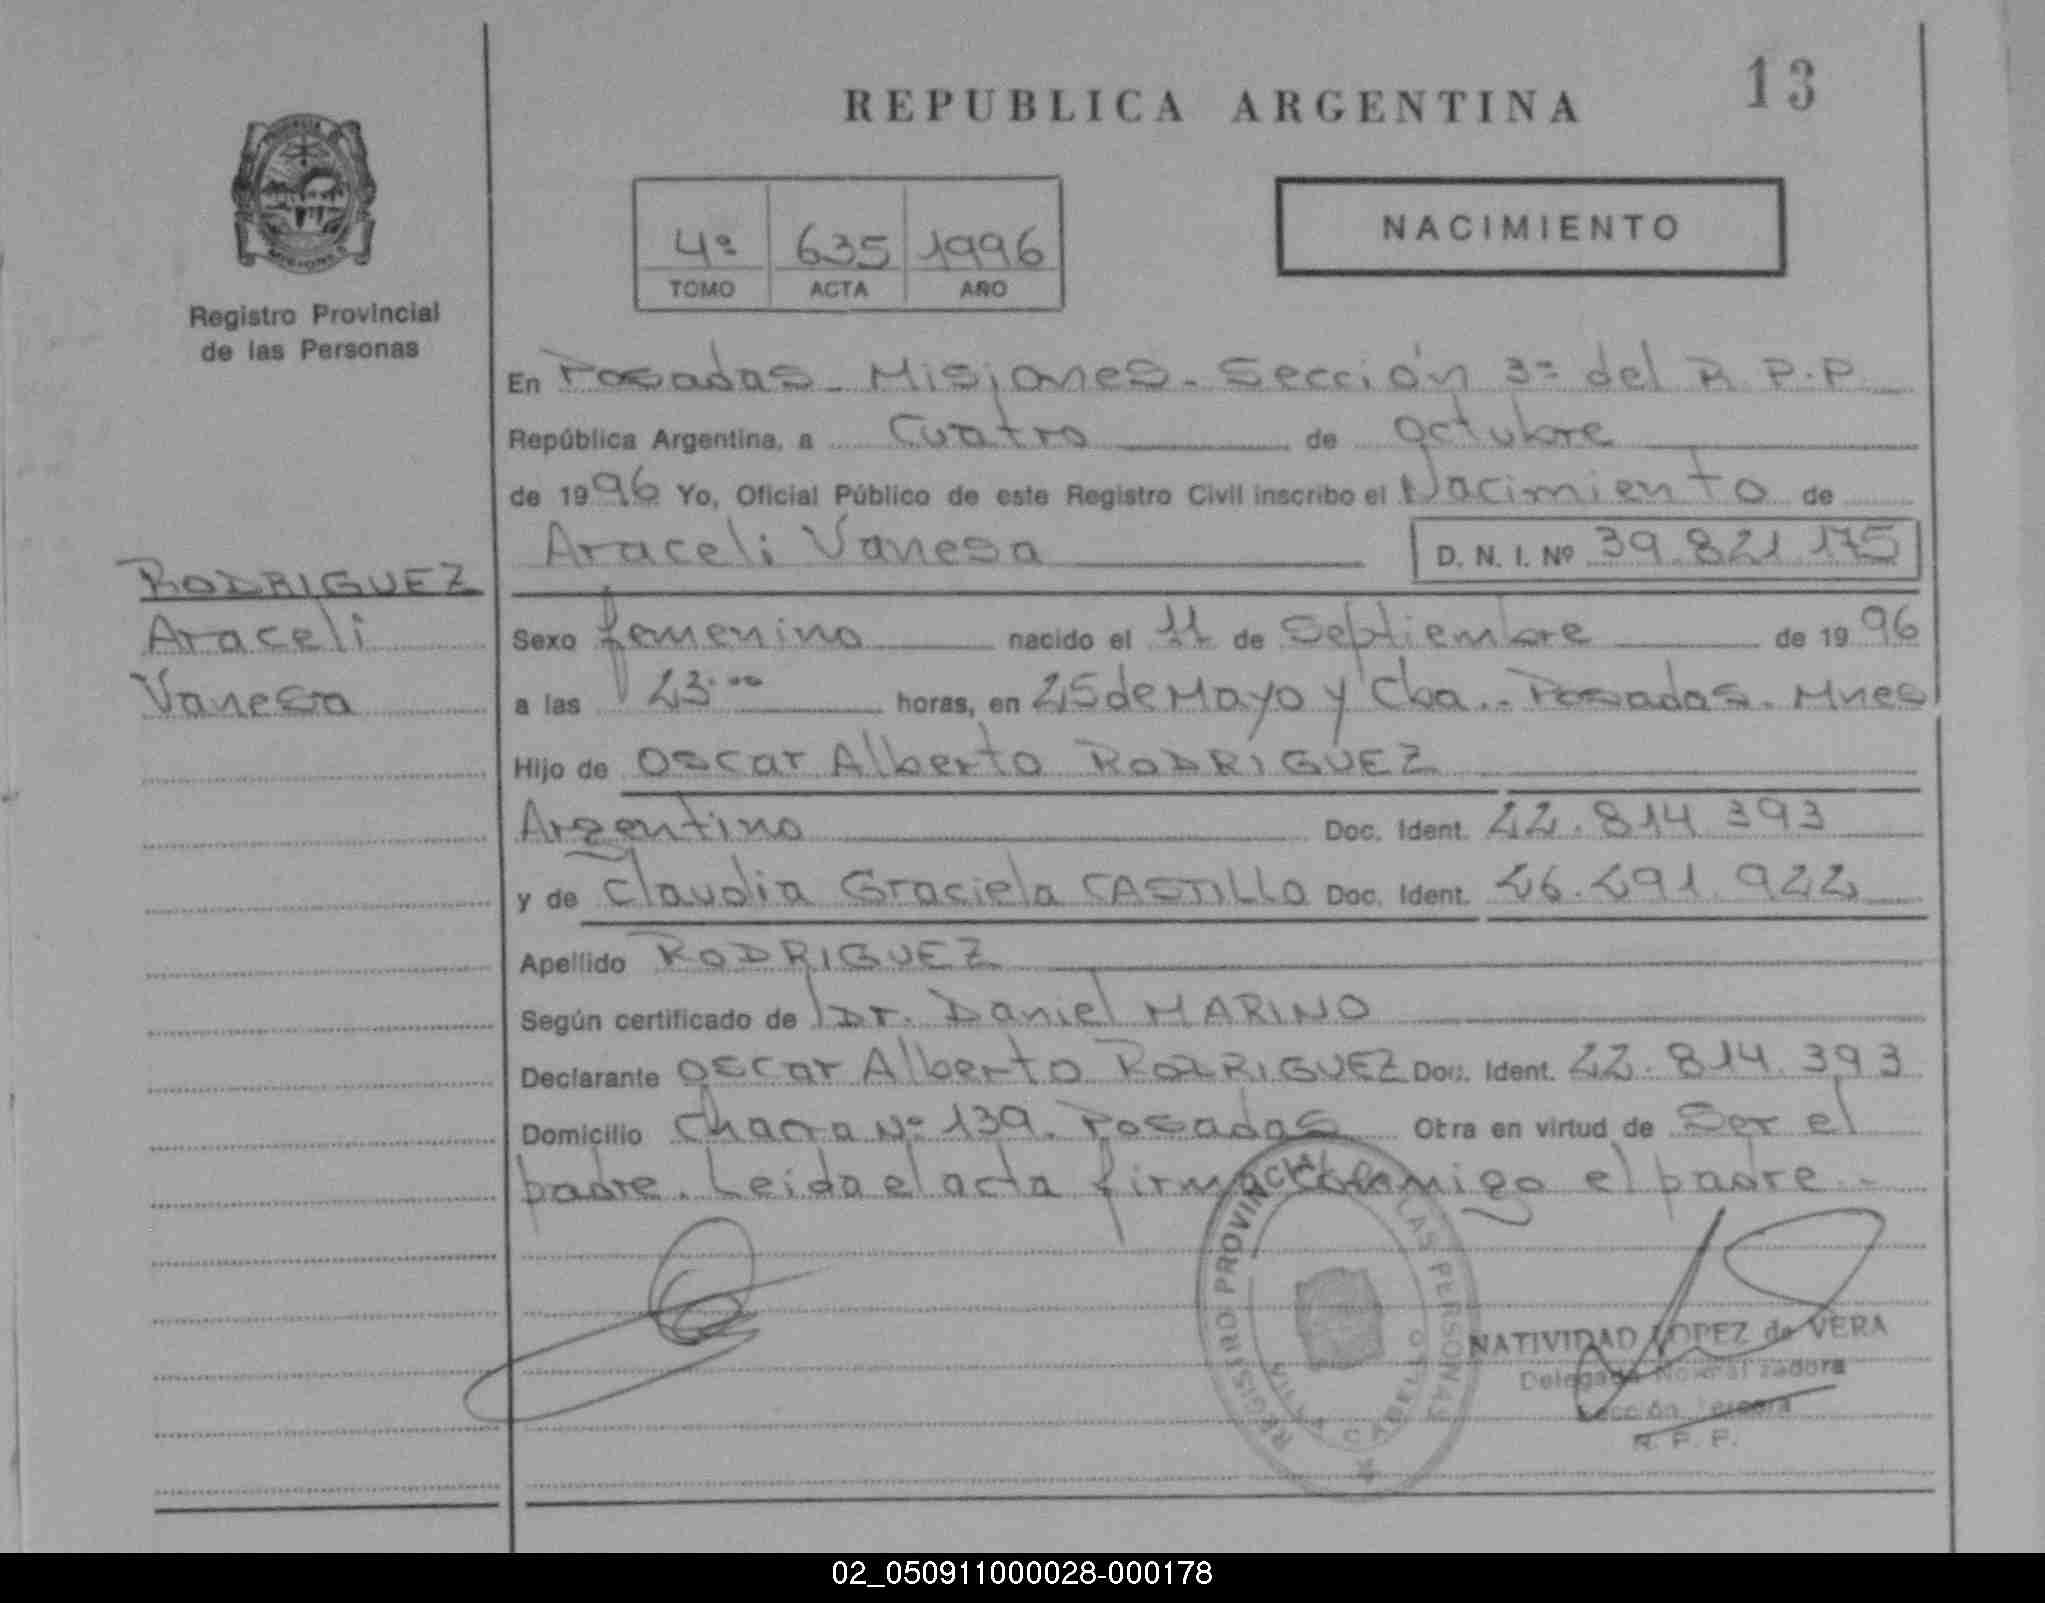 13
REPUBLICA ARGENTINA
NACIMIENTO
4º 635 1996
TOMO ACTA AÑO
Registro Provincial
de las Personas
En Posadas - Misiones - Sección 3ª del R.P.P
República Argentina, a Cuatro de octubre
de 1996 Yo, Oficial Público de este Registro Civil inscribo el Nacimiento de
Araceli Vanesa D. N. I. Nº 39.821.175
RODRIGUEZ
Araceli
Vanesa
Sexo femenino nacido el 11 de Septiembre de 1996
a las 23:00 horas, en 25 de Mayo y Cba.. Posadas. Mnes
Hijo de Oscar Alberto RODRIGUEZ
Argentino Doc. Ident. 22.814 393
y de Claudia Graciela CASTILLO Doc. Ident. 26.291.922
Apellido RODRIGUEZ
Según certificado de Dr. Daniel MARINO
Declarante Oscar Alberto RODRIGUEZ Doc. Ident. 22.814.393
Domicilio Chacra Nº 139. Posadas Otra en virtud de Ser el
padre. Leida el acta firma conmigo el padre.-
REGISTRO PROVINCIAL DE LAS PERSONAS
NATIVIDAD LOPEZ de VERA
Delegada Normalizadora
Sección Tercera
R. P. P.
02_050911000028-000178